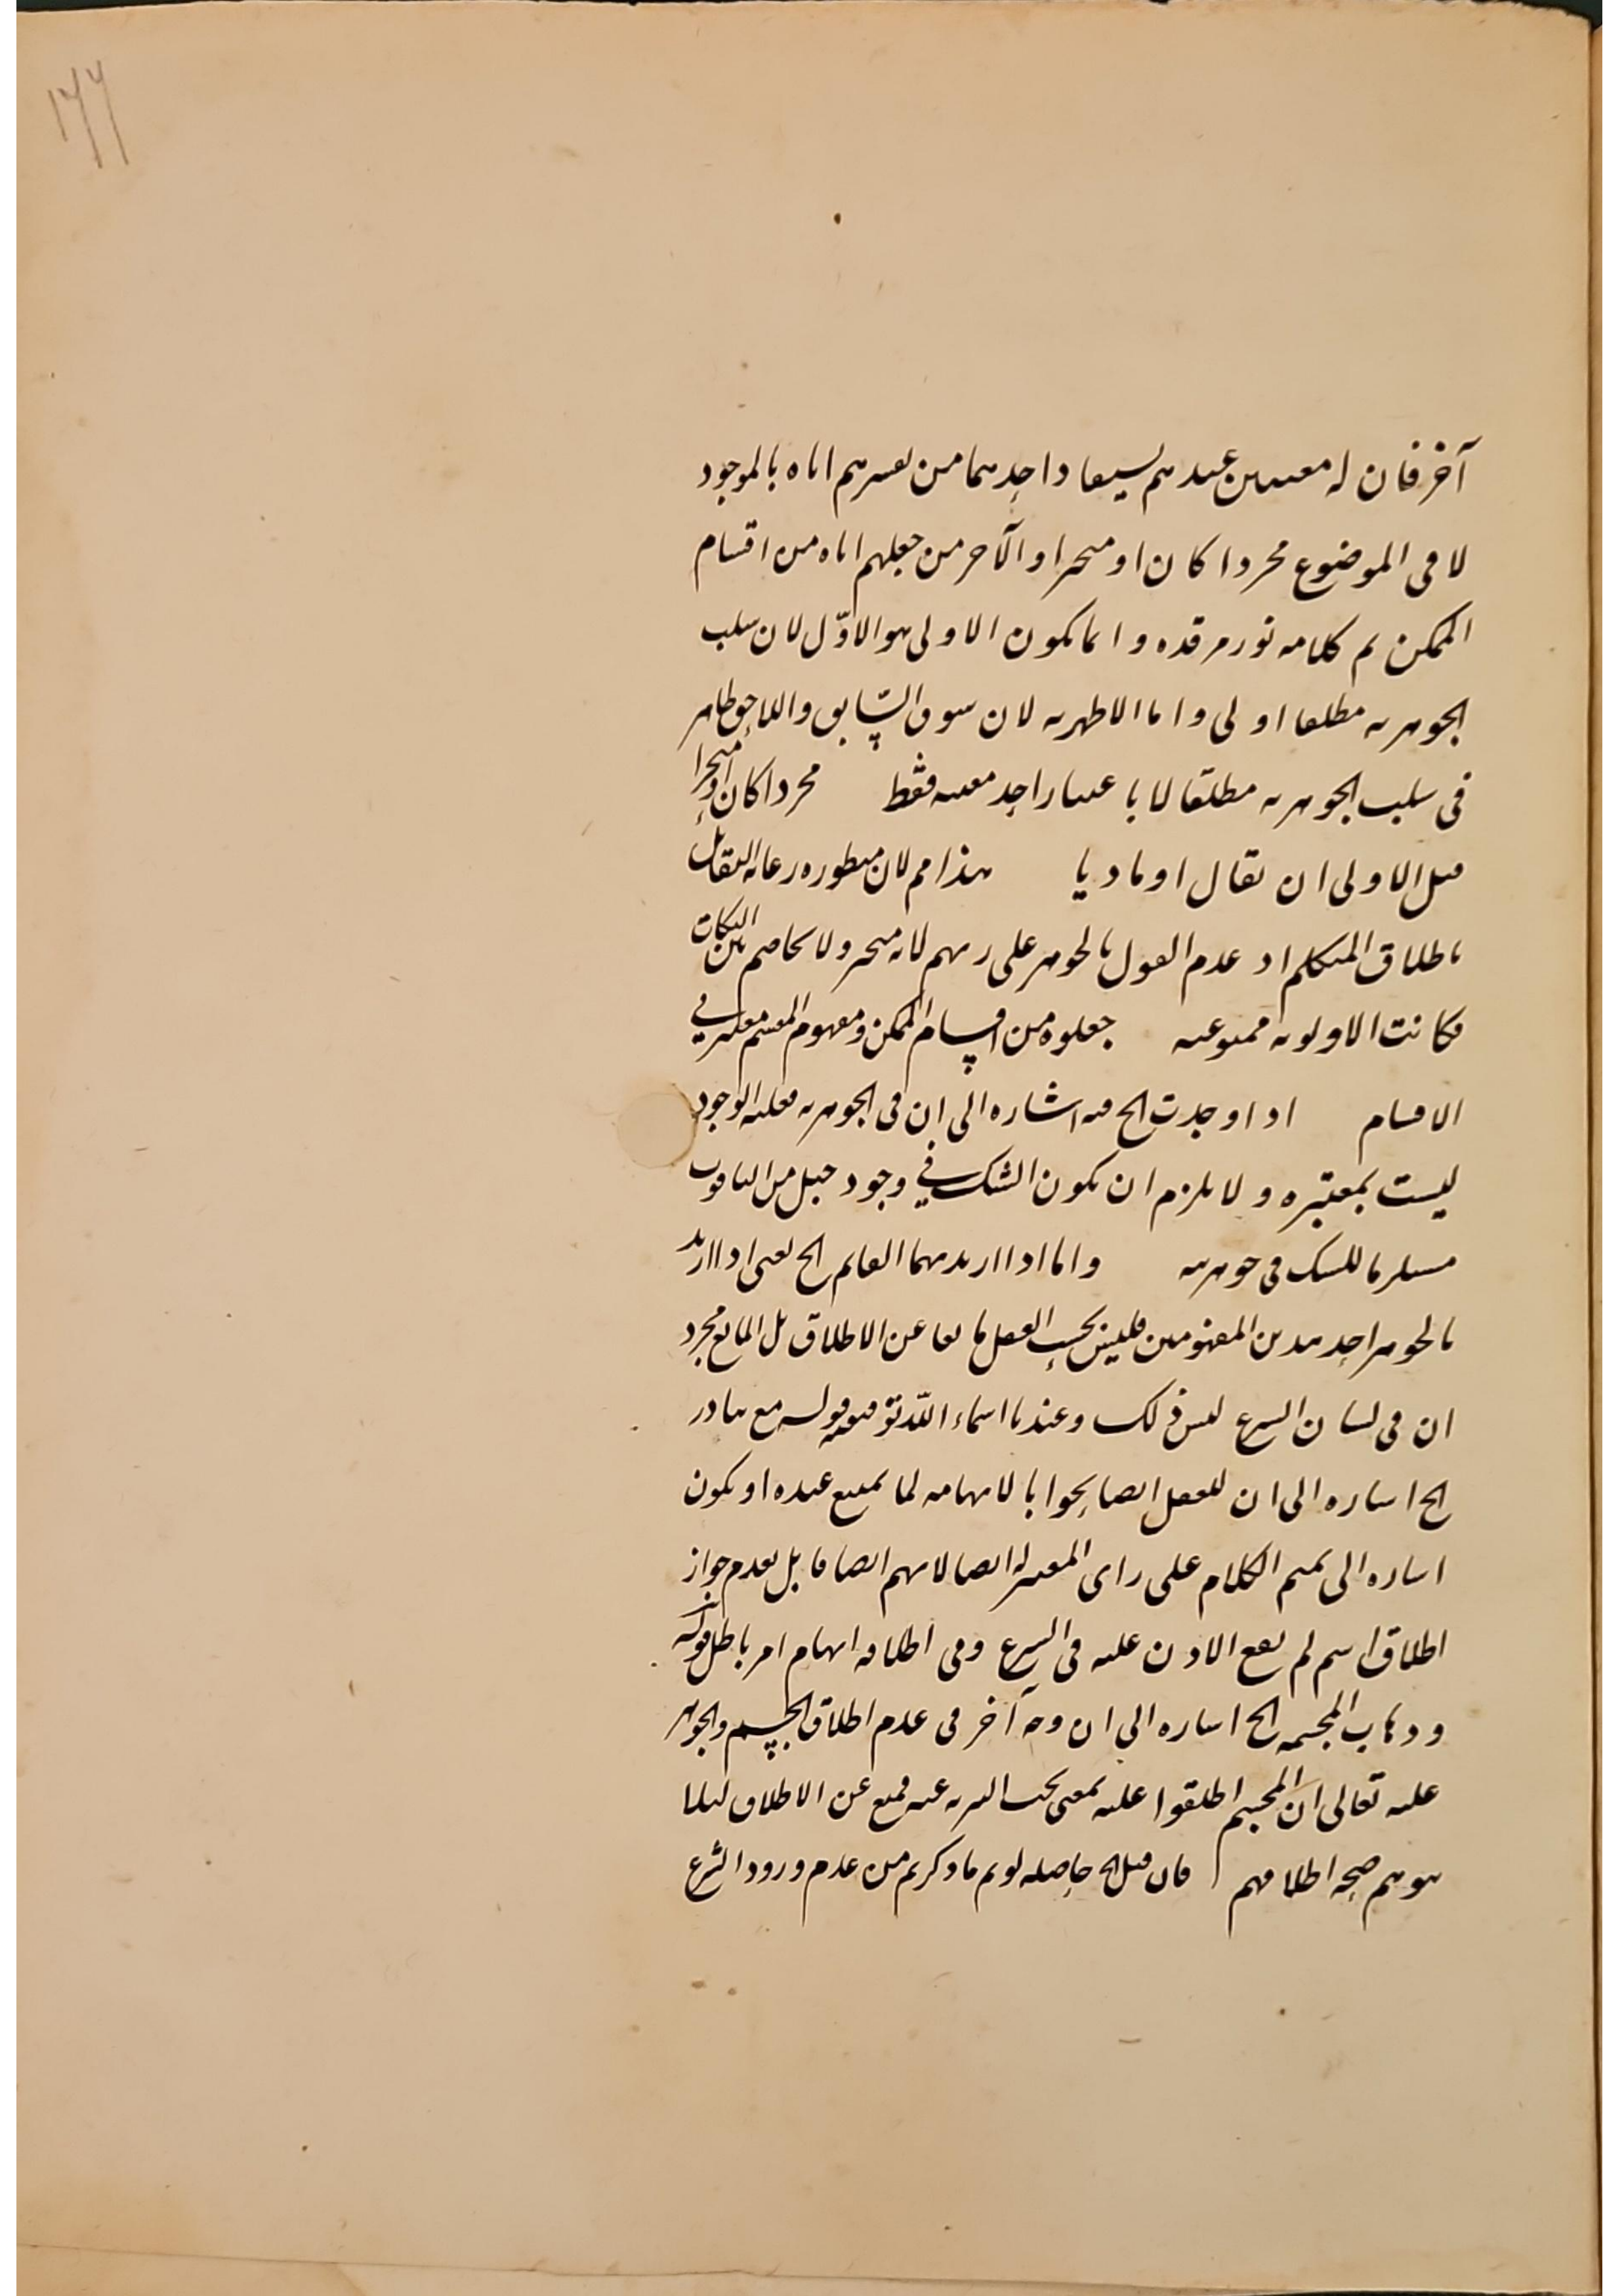 ١٧٧
آخر فان له معنيين عندهم يستفاد احدهما من تفسيرهم اياه بالموجود
لا فى الموضوع مجردا كان او متحيزا والآخر من جعلهم اياه من اقسام
الممكن تم كلامه نور مرقده و اما كون الاولى هو الاوّل لان سلب
الجوهرية مطلقا اولى واما الاظهرية لان سوق السّابق واللاحق ظاهر
فى سلب الجوهرية مطلقا لا باعتبار احد معنييه فقط مجردا كان او متحيزا
قيل الاولى ان يقال او ماديا هذا مم لان منظوره رعاية التقابل
باطلاق المتكلم اذ عدم القول بالجوهر على رايهم لانه متحيز ولا تخاصم بين النكات
فكانت الاولوية ممنوعة جعلوه من اقسام الممكن ومفهوم المقسم معتبر في
الاقسام اذا وجدت الخ فيه اشاره الى ان فى الجوهرية فعلية الوجود
ليست بمعتبره و لا يلزم ان يكون الشك في وجود جبل من الياقوت
مستلزما للشك فى جوهريته واما اذا اريد بهما القايم الخ يعنى اذا اريد
بالجوهر احد هذين المفهومين فليس بحسب العقل مانعا عن الاطلاق بل المانع مجرد
ان فى لسان الشرع ليس ذلك وعندنا اسماء اللّه توقيفية قوله مع تبادر
الخ اشاره الى ان للعقل ايضا بالايهامه لما يمتنع عنده او يكون
اشاره الى تتميم الكلام على راى المعتزلة ايضا لانهم ايضا قايل بعدم جواز
اطلاق اسم لم يقع الاذن عليه فى الشرع وفى اطلاقه ايهام امر باطل قوله
وذهاب المجسمه الخ اشاره الى ان وجه آخر فى عدم اطلاق الجسم والجوهر
عليه تعالى ان المجسم اطلقوا عليه بمعنى يجب التنزيه عنه فمنع عن الاطلاق لئلا
يتوهم صحة اطلاقهم فان قيل الخ حاصله لو تم ما ذكرتم من عدم ورود الشرع